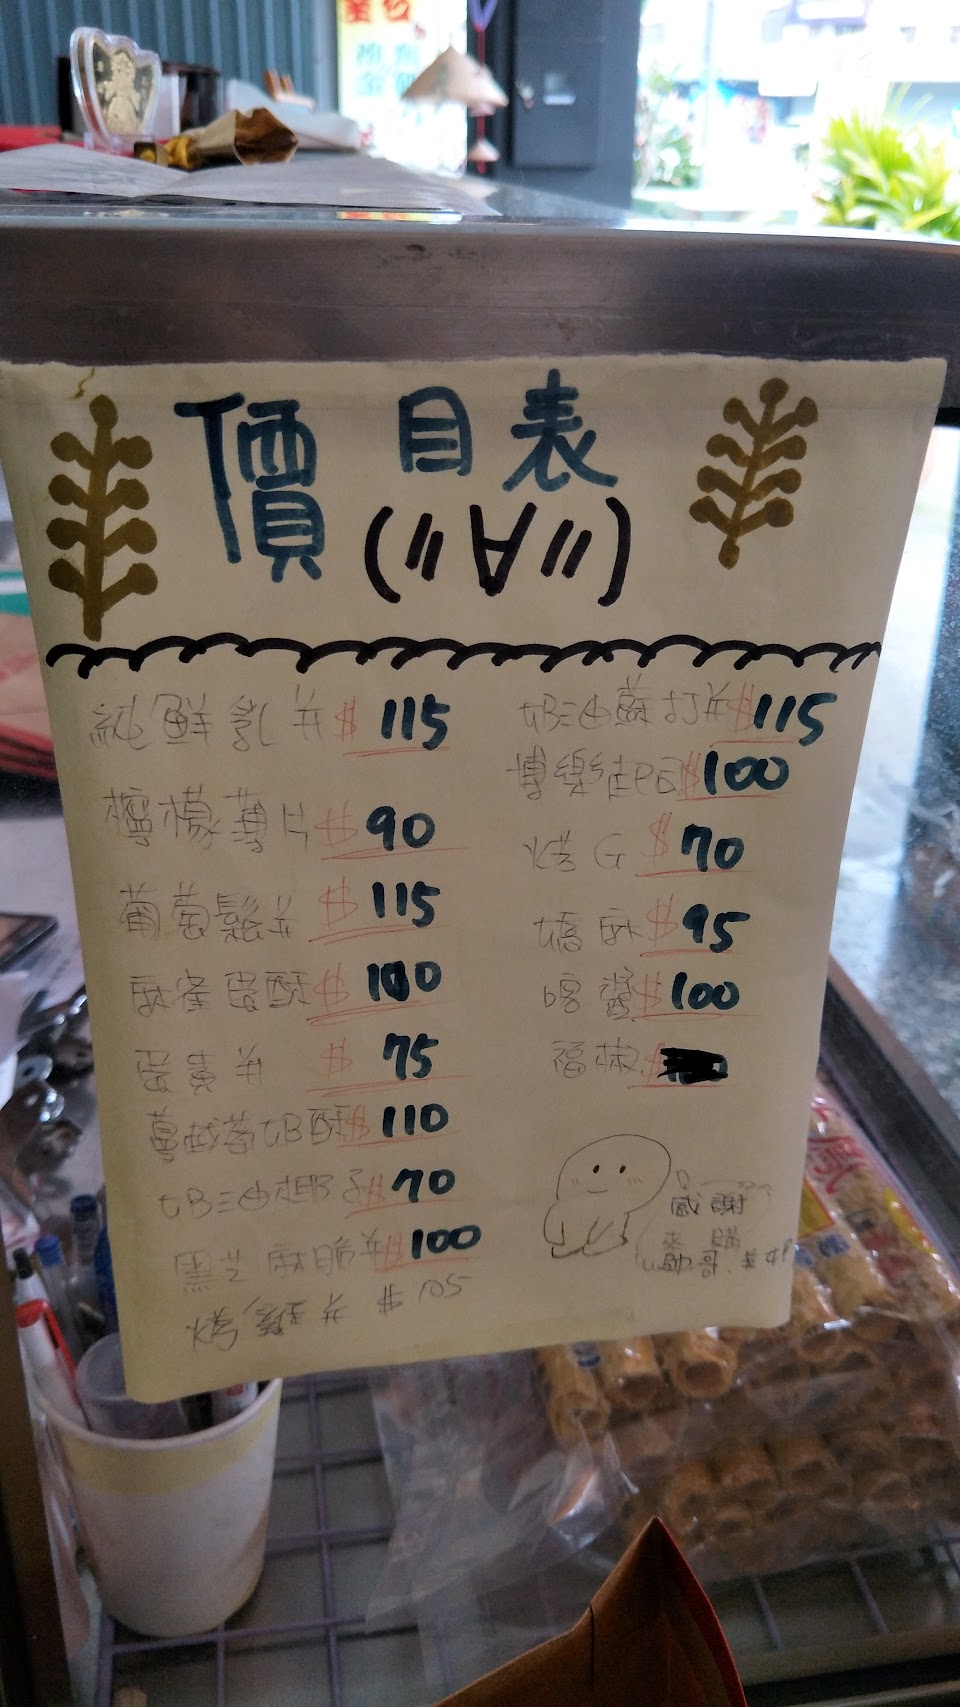 價目表
(〃∀〃)
純鮮乳并 $ 115
檸檬薄片 $ 90
葡萄鬆并 $ 115
麻雀蛋酥 $ 100
蛋黃并 $ 75
蔓越莓奶酥 $ 110
奶油椰子 $ 70
黑芝麻脆并 $ 100
烤雞并 $ 105
奶油蘇打并 $ 115
博樂起司 $ 100
烤G $ 70
嬌酥 $ 95
哈醬 $ 100
福椒 $
感謝
來購
帥哥、美女